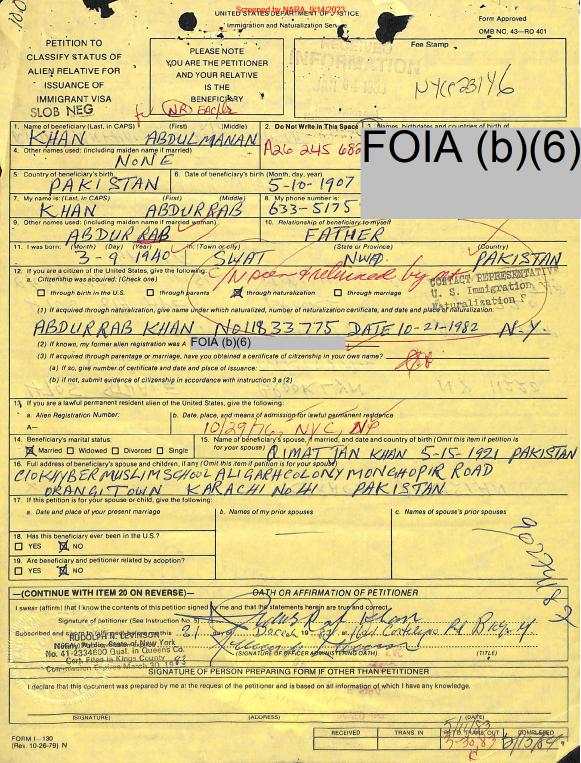 Screened by NARA, 9/14/2023
100
UNITED STATES DEPARTMENT OF JUSTICE
Immigration and Naturalization Serv
Form Approved
OMB NO. 43—RO 401
PETITION TO
CLASSIFY STATUS OF
ALIEN RELATIVE FOR
ISSUANCE OF
IMMIGRANT VISA
SLOB NEG
PLEASE NOTE
YOU ARE THE PETITIONER
AND YOUR RELATIVE
IS THE
BENEFICIARY
RECEIVED
INFORMATION
Fee Stamp
1. Name of beneficiary (Last, in CAPS) (First) (Middle)
KHAN ABDULMANAN
2. Do Not Write in This Space
A26 245 680
3. Names, birthdates and countries of birth of
FOIA (b)(6)
4. Other names used: (including maiden name if married)
NONE
5. Country of beneficiary's birth
PAKISTAN
6. Date of beneficiary's birth (Month, day, year)
5-10-1907
7. My name is: (Last, in CAPS) (First) (Middle)
KHAN ABDURRAB
8. My phone number is:
633-5175
9. Other names used: (including maiden name if married woman)
ABDUR RAB
10. Relationship of beneficiary to myself
FATHER
11. I was born: (Month) (Day) (Year) In: (Town or city) (State or Province) (Country)
3-9-1940 SWAT NWP. PAKISTAN
12. If you are a citizen of the United States, give the following:
a. Citizenship was acquired: (Check one)
CONTACT REPRESENTATIVE
U. S. Immigration
Naturalization S
through birth in the U.S. through parents through naturalization through marriage
(1) If acquired through naturalization, give name under which naturalized, number of naturalization certificate, and date and place of naturalization:
ABDURRAB KHAN NO 11833775 DATE 10-21-1982 N.Y.
(2) If known, my former alien registration was A FOIA (b)(6)
(3) If acquired through parentage or marriage, have you obtained a certificate of citizenship in your own name?
(a) If so, give number of certificate and date and place of issuance:
(b) If not, submit evidence of citizenship in accordance with instruction 3 a (2)
13. If you are a lawful permanent resident alien of the United States, give the following:
a. Alien Registration Number: b. Date, place, and means of admission for lawful permanent residence
A— 10/29/76, NYC, NP
14. Beneficiary's marital status:
Married Widowed Divorced Single
15. Name of beneficiary's spouse, if married, and date and country of birth (Omit this item if petition is
for your spouse)
QIMAT JAN KHAN 5-15-1921 PAKISTAN
16. Full address of beneficiary's spouse and children, if any (Omit this item if petition is for your spouse)
C/O KHYBER MUSLIM SCHOOL ALIGARH COLONY MONGHOPIR ROAD
ORANGI TOWN KARACHI NO 41 PAKISTAN
17. If this petition is for your spouse or child, give the following:
a. Date and place of your present marriage b. Names of my prior spouses c. Names of spouse's prior spouses
18. Has this beneficiary ever been in the U.S.?
YES NO
19. Are beneficiary and petitioner related by adoption?
YES NO
—(CONTINUE WITH ITEM 20 ON REVERSE)— OATH OR AFFIRMATION OF PETITIONER
I swear (affirm) that I know the contents of this petition signed by me and that the statements herein are true and correct.
Signature of petitioner (See Instruction No. 5):
Subscribed and sworn to 31 day of 19
RUDOLPH N. LEVINSON
Notary Public, State of New York
No. 41-2334600 Qual. in Queens Co.
Cert. Filed in Kings County
Commission Expires March 30, 1983
(SIGNATURE OF OFFICER ADMINISTERING OATH) (TITLE)
SIGNATURE OF PERSON PREPARING FORM IF OTHER THAN PETITIONER
I declare that this document was prepared by me at the request of the petitioner and is based on all information of which I have any knowledge.
(SIGNATURE) (ADDRESS) (DATE)
FORM I—130
(Rev. 10-26-79) N
RECEIVED TRANS. IN RET'D TRANS. OUT COMPLETED